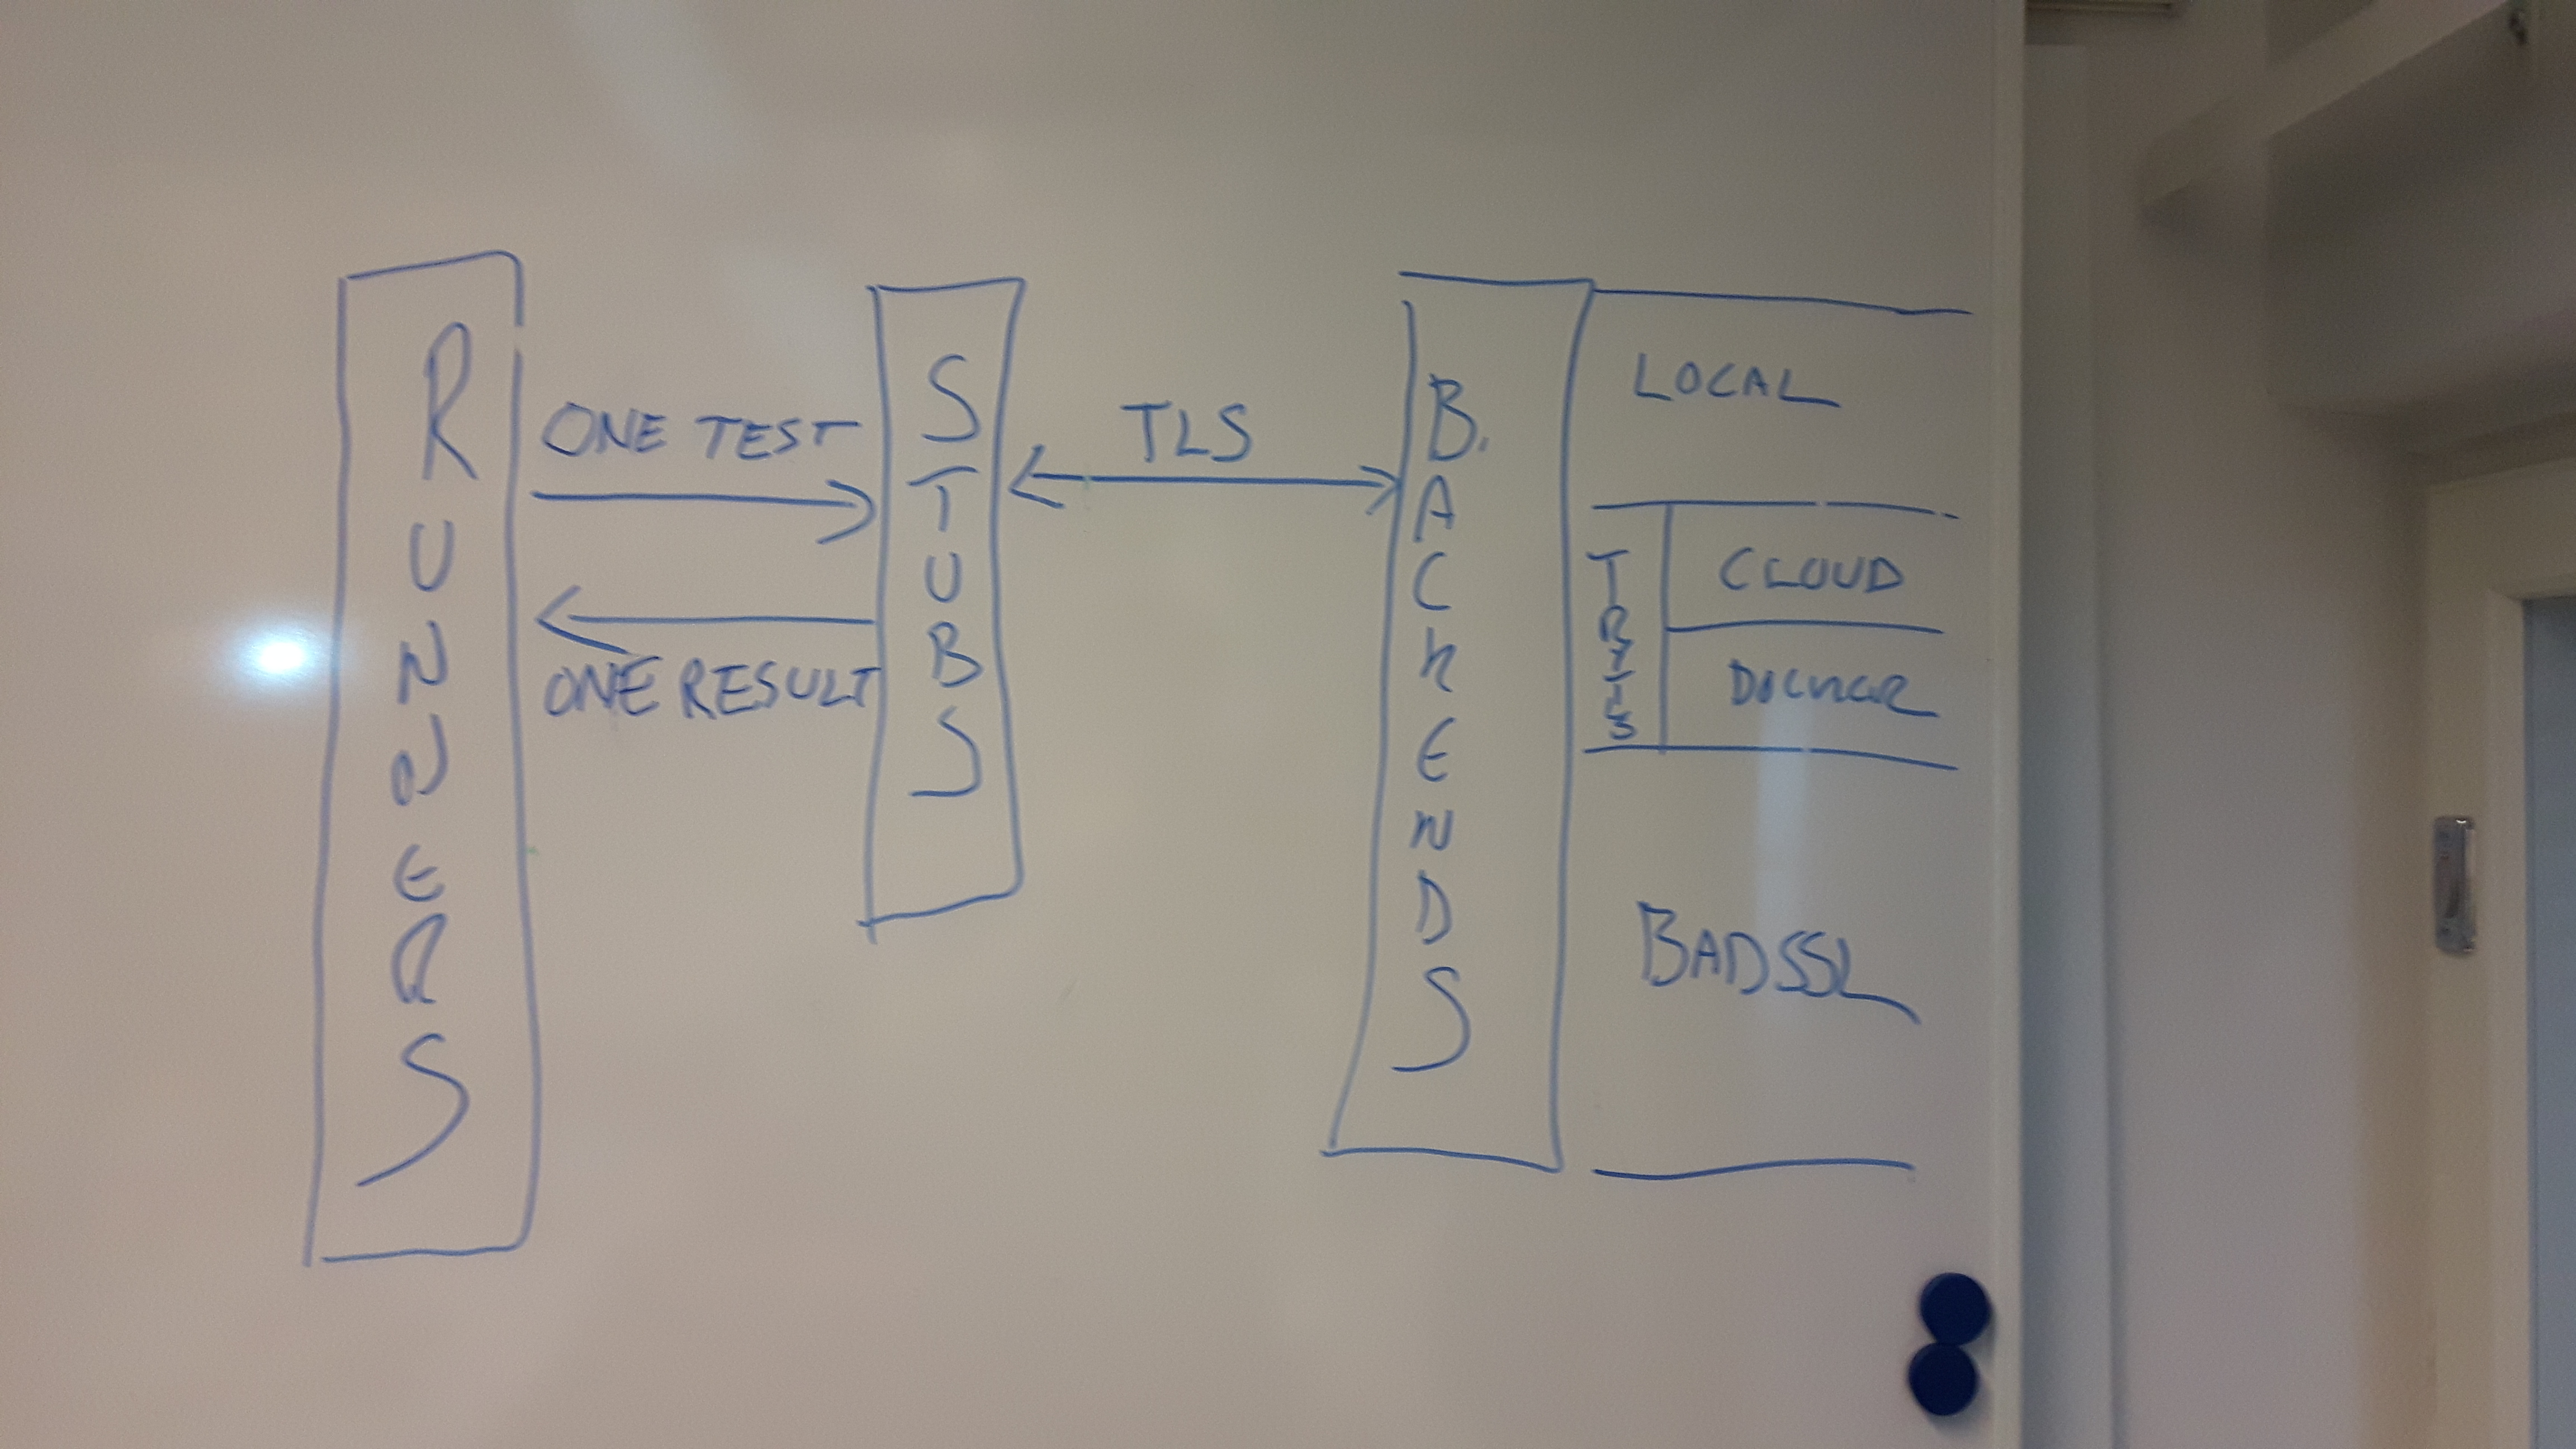 RUNNERS
ONE TEST
ONE RESULT
STUBS
TLS
BACKENDS
LOCAL
TRYTLS
CLOUD
DOCKER
BADSSL